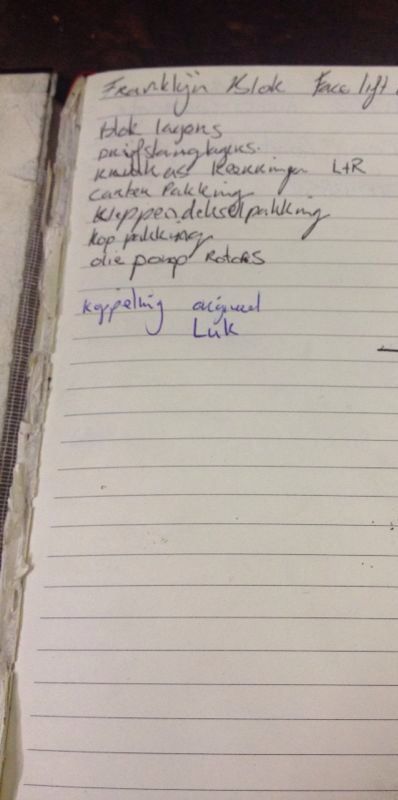 Franklijn Blok Face lift
blok lagers
drijfstanglagers.
krukas keerringen L+R
carter Pakking
kleppendekselpakking
kop pakking
olie pomp Rotors
koppeling origineel
Luk